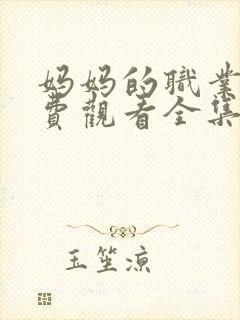 妈妈的職業
費觀看全集
玉笙涼